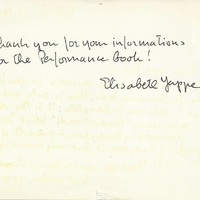 Thank you for your informations
for the Performance book!
Elisabete